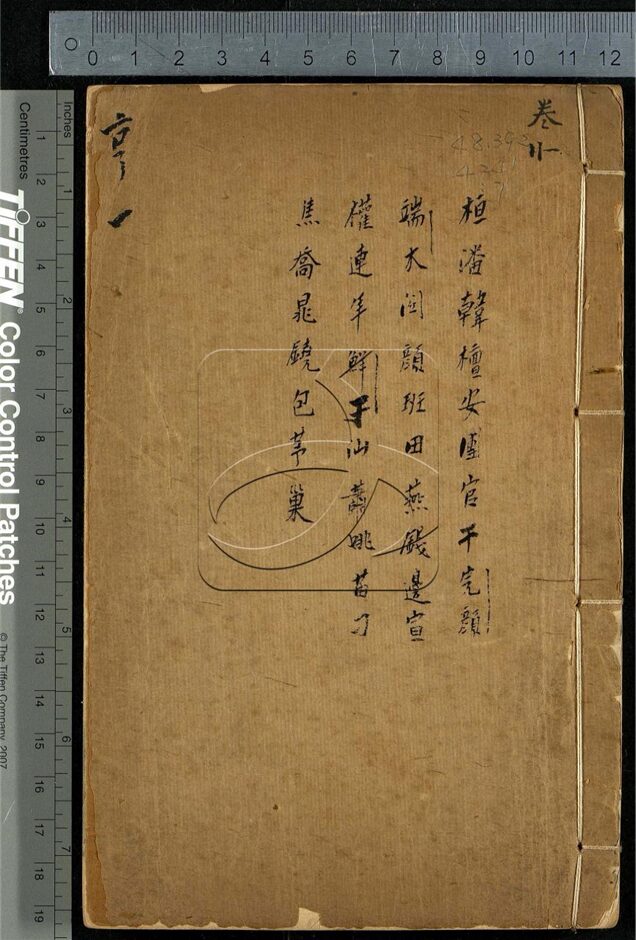 卷
桓潘韓檀安團官干完顔
端木闵顔班田燕錢邊宣
權連年鮮于山蕭姚苗刁
焦喬晁鐃包茅巢
亨
0 1 2 3 4 5 6 7 8 9 10 11 12
Inches
1 2 3 4 5 6 7
Centimetres
1 2 3 4 5 6 7 8 9 10 11 12 13 14 15 16 17 18 19
TIFFEN® Color Control Patches
© The Tiffen Company, 2007